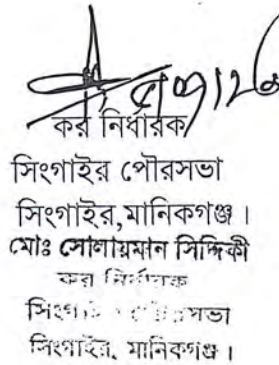 কর নির্ধারক
সিংগাইর পৌরসভা
সিংগাইর,মানিকগঞ্জ।
মোঃ সোলায়মান সিদ্দিকী
কর নির্ধারক
সিংগাইর পৌরসভা
সিংগাইর, মানিকগঞ্জ।